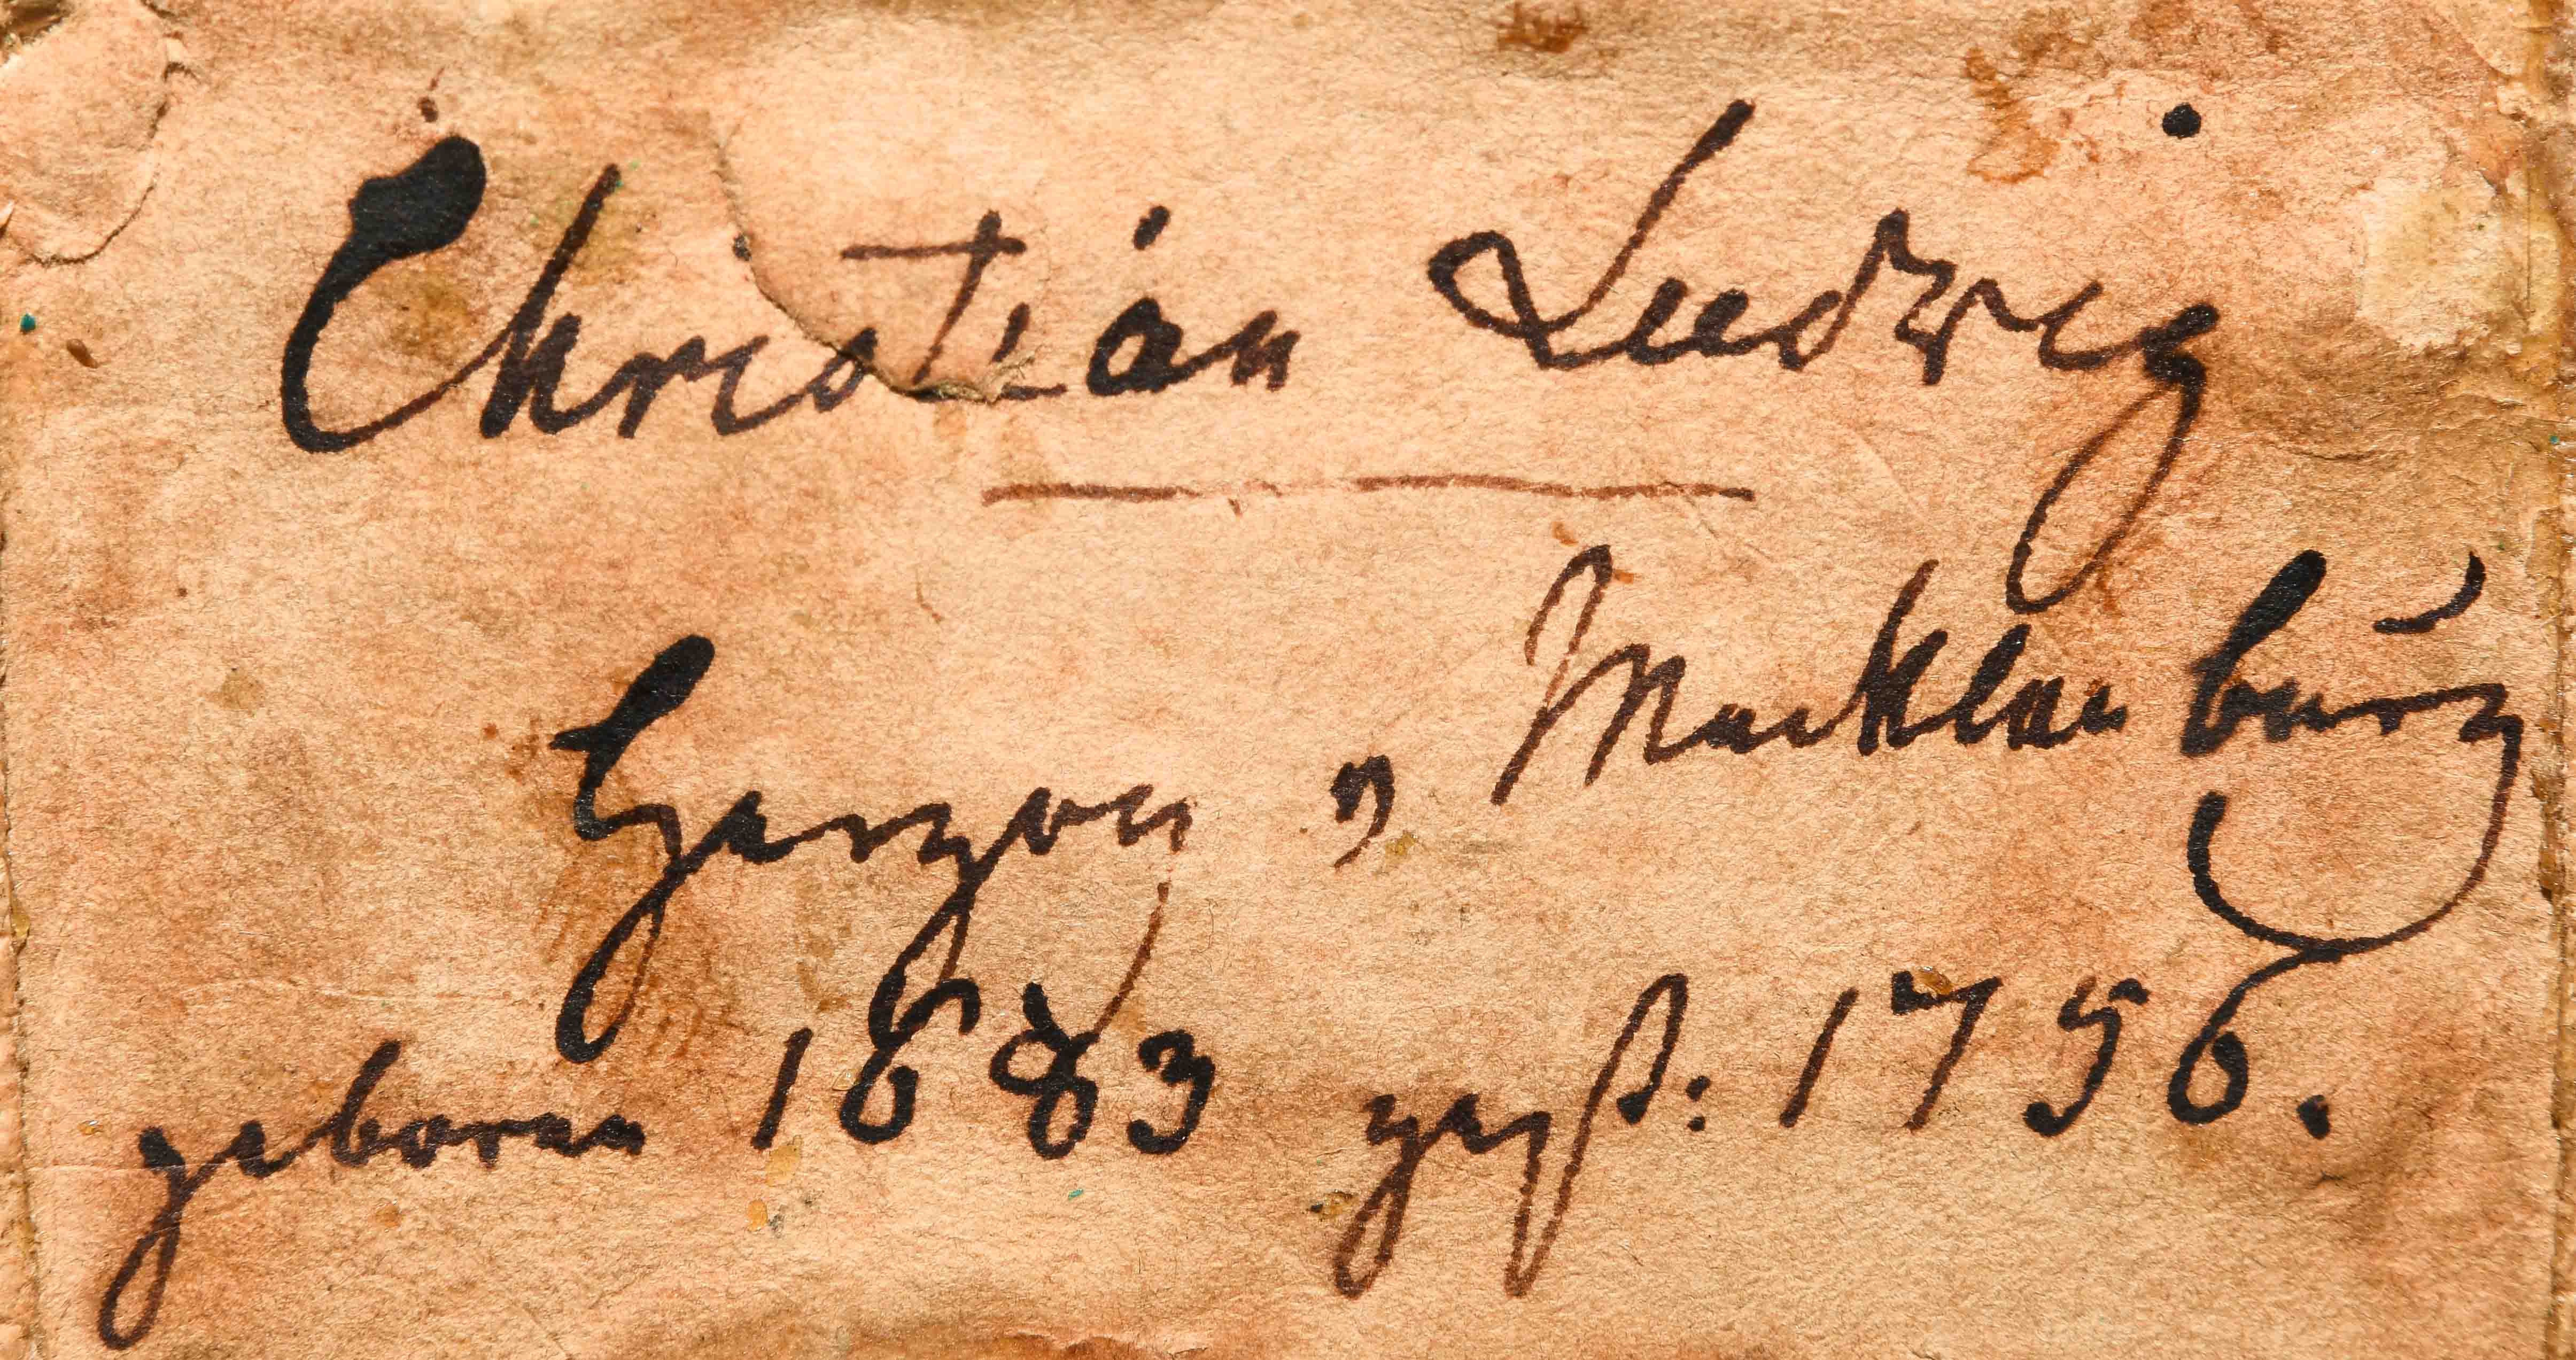 Christian Ludwig
Herzog v Mecklenburg
geboren 1683 gest: 1756.